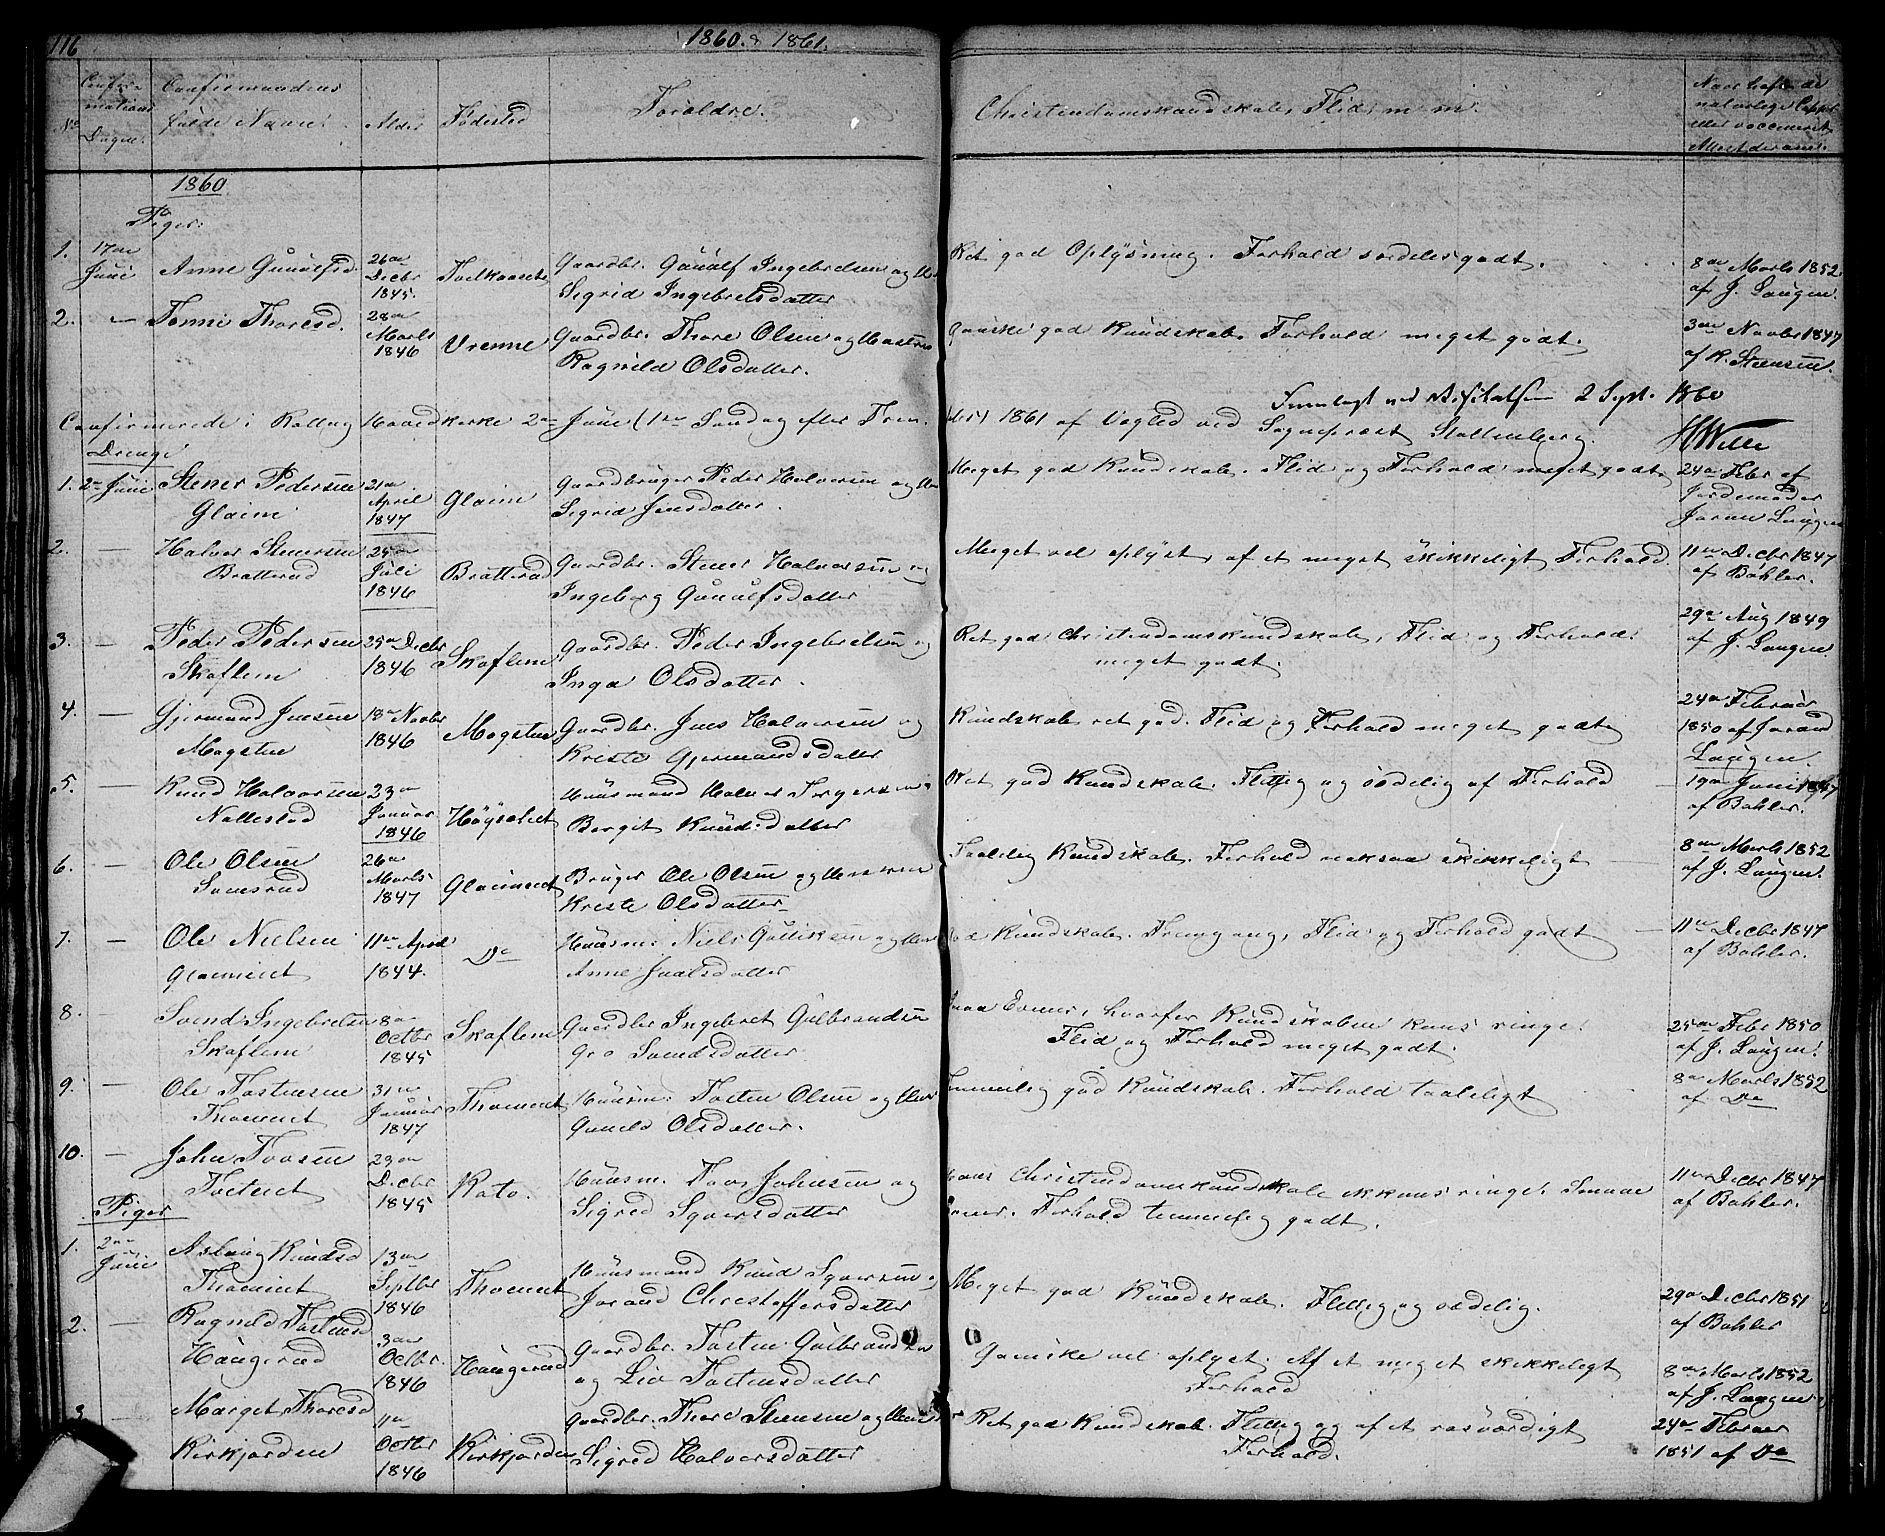 116
1860. & 1861.
No
Confirmations Dagen.
Confirmandens fulde Navn.
Alder
Fødested
Forældre.
Christendomskundskab, Flid, m. m.
1860
Piger:
1. 17de Juni Anne Gunulfsd. 26de Decbr 1845. Gaardbr. Gunulf Ingebretsen og
Sigrid Ingebretsdatter
Ret god Oplysning. Forhold særdeles godt.
8de Marts 1852. af J. Laugen.
2. — Tonne Thoresd. 28de Marts 1846 Vrenne Gaardbr. Thore Olsen og Hustru
Ragnild Olsdatter.
Ganske god Kundskab. Forhold meget godt.
3die Novbr 1847 af K. Steensen.
Fremlagt ved Visitatsen 2 Sept. 1860
Wille
Confirmerede i Rollag Hovedkirke 2den Juni (1ste Søndag efter Trin.) 1861 af Vogled ved Sognepræst Stoltenberg.
Drenge
1. 2den Juni Stener Pedersen Glaim 21de April 1847 Glaim Gaardbruger Peder Halvorsen og
Sigrid Jensdatter.
Meget god Kundskab. Flid og Forhold meget godt
24de Febr af Jordemoder Joran Laugen
2. — Halvor Stenersen Bratterud 25de Juli 1846 Bratterud Gaardbr. Stener Halvorsen og
Ingeborg Gunulfsdatter
Meget vel oplyst, af et meget skikkeligt Forhold.
11te Decbr 1847 af Bøhler.
3. — Peder Pedersen Skaflem 25de Decbr 1846 Skaflem Gaardbr. Peder Ingebretsen og
Inga Olsdatter.
Ret god Christendomskundskab, Flid og Forhold
meget godt.
29de Aug 1849 af J. Laugen.
4. — Gjermund Jensen Mogsten 18de Novbr 1846 Mogsten Gaardbr. Jens Halvorsen og
Kriste Gjermundsdatter
Kundskab ret god. Flid og Forhold meget godt
24de Februar 1850 af Jorand Laugen.
5. — Knud Halvorsen 23de Januar 1846 Huusmand Halvor
Bergit Knudsdatter
Ret god Kundskab. Flittig og sædelig af Forhold
19de Juni af Bøhler.
6. — Ole Olsen 26de Marts 1847 Glaimeiet Bruger Ole Olsen og
Kriste Olsdatter
Taalelig Kundskab. Forhold noksaa skikkeligt
8de Marts 1852 af J. Laugen.
7. — Ole Nielsen Glaimeiet 11te April 1844. Do Huusm. Niels Gulliksen og
Anne Joelsdatter
Kundskab. Fremgang, Flid og Forhold godt
11te Decbr 1847 af Bøhler.
8. — Svend Ingebretsen Skaflem 8de Octbr 1845 Skaflem Gaardbr Ingebret Gulbrandsen
Gro Svendsdatter.
Smaa Evner, hvorfor Kundskaben kuns ringe.
Flid og Forhold meget godt.
25de Febr 1850 af J. Laugen.
9. — Ole Tostensen Thomeiet 31te Januar 1847 Thomeiet Huusm. Tosten Olsen og
Gunild Olsdatter.
Temmelig god Kundskab. Forhold taaleligt
8de Marts 1852 af Do
10. — John Tovsen 23de Decbr 1845 Kato. Huusm. Tov Johnsen og
Sigred Syversdatter
Hans Christendomskundskab ikkuns ringe. Smaae
Evner. Forhold temmelig godt.
11te Decbr 1847 af Bøhler.
Piger
1. 2den Juni Aslaug Knudsd Thomeiet 13de Septbr 1846 Thomeiet Huusmand Knud Syversen og
Jorand Christoffersdatter
Meget god Kundskab. Flittig og sædelig.
29de Decbr 1851 af Bøhler
2. — Ragnild Tostensd Haugerud 3die Octbr. 1846 Haugerud Gaardbr. Tosten Gulbrandsen
og Liv Tostensdatter
Ganske vel oplyst. Af et meget skikkeligt
Forhold
8de Marts 1852 af J. Laugen
3 — Marget Thoresd Kirkjorden 11te Octbr 1846 Kirkjorden Gaardbr. Thore Stensen og
Sigrid Halvorsdatter
Ret god Kundskab. Flittig og af et rosværdigt
Forhold.
24de Februar 1851 af Do